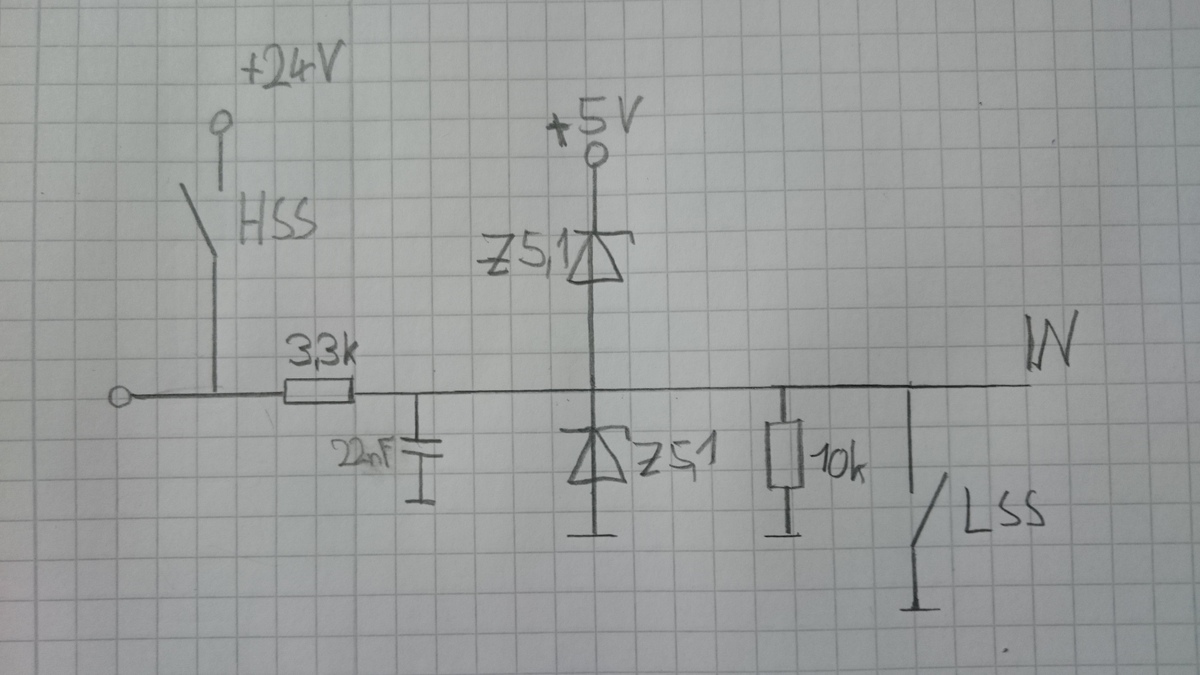 +24V
+5V
HSS
Z5,1
3,3k
IN
22nF
Z5,1
10k
LSS